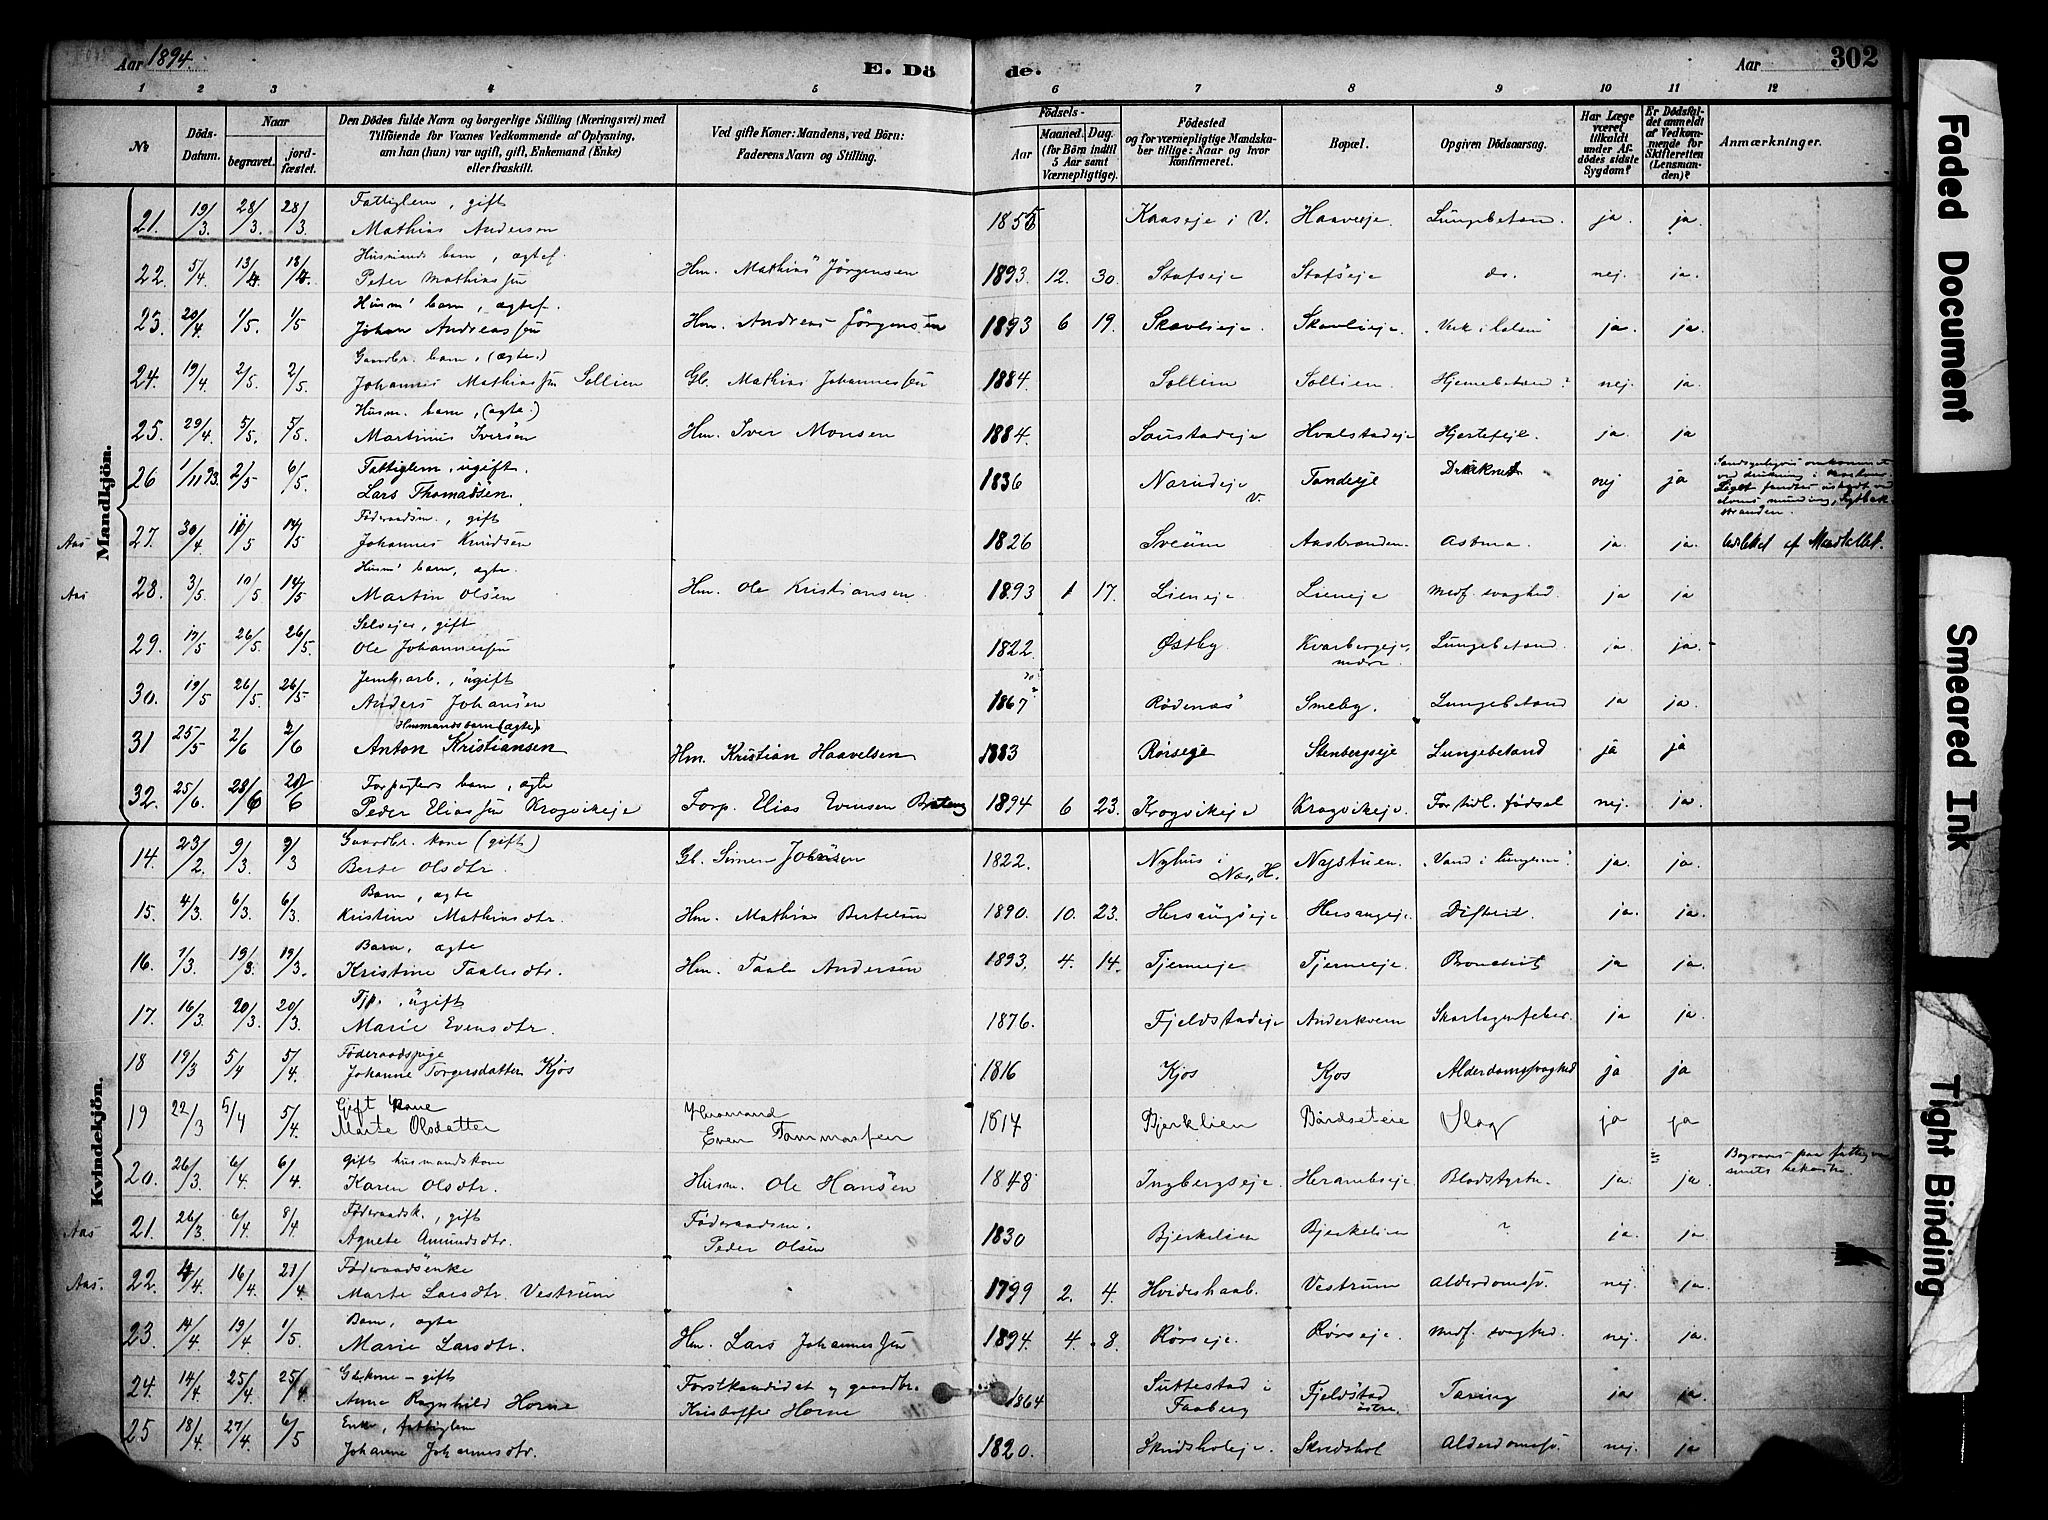 Aar 1894.
E. Dö de.
Aar
302
1 2 3 4 5 6 7 8 9 10 11 12
No
Döds-Datum.
Naar
begravet.
jordfæstet.
Den Dödes fulde Navn og borgerlige Stilling (Næringsvei) med
Tilföiende for Voxnes Vedkommende af Oplysning,
om han (hun) var ugift, gift, Enkemand (Enke)
eller fraskilt.
Ved gifte Koner: Mandens, ved Börn:
Faderens Navn og Stilling.
Födsels-
Aar
Maaned. Dag.
(for Börn indtil
5 Aar samt
Værnepligtige).
Födested
og for værnepligtige Mandska-
ber tillige: Naar og hvor
konfirmeret.
Bopæl.
Opgiven Dödsaarsag.
Har Læge
været
tilkaldt
under Af-
dödes sidste
Sygdom?
Er Dödsfal-
det anmeldt
af Vedkom-
mende for
Skifteretten
(Lensman-
den)?
Anmærkninger.
Mandkjön.
Fattiglem, gift
21. 19/3 28/3 28/3 Mathias Andersen 1855 Kaaseje i V. Haaveeje Lungebetænd. ja. ja
Husmands barn, ægtef.
22. 5/4 13/4 13/4 Peter Mathiassen Hm. Mathias Jörgensen 1893 12. 30. Stafseje Stafseje do. nej. ja.
Husm' barn, ægtef.
23. 20/4 1/5. 1/5 Johan Andreassen Hm. Andreas Jörgensen 1893 6 19. Skavlieje. Skavlieje. ja. ja.
Gaardbr. barn, (ægte.)
24. 19/4 2/5. 2/5. Johannes Mathiassen Sollien Gb. Mathias Johannessen 1884. Sollien Sollien. Hjernebetænd? nej. ja.
Husm. barn, (ægte.)
25. 29/4. 5/5. 5/5. Martinus Iversen Hm. Iver Monsen 1884. Hvalstadeje Hjertefejl. ja. ja
Fattiglem, ugift.
26 1/11 93. 2/5 6/5. Lars Thomassen. 1836 V. Tandeje Druknet nej ja
Föderaadsm., gift
Aas 27. 30/4 10/5 14/5 Johannes Knudsen 1826 Sveum Aasbranden. Astma. ja. ja. Udslettet af Mandtallet.
Husm' barn, ægte.
Aas 28. 3/5. 10/5 14/5 Martin Olsen Hm. Ole Kristiansen. 1893 1 17. Lieneje. Lieneje Medf. svaghed. ja ja
Selvejer, gift
29 17/5 26/5. 26/5. Ole Johannessen 1822. Østby Kvarbergeje, nedre. Lungebetænd. ja. ja.
Jernb.arb., ugift
30. 19/5 26/5 26/5 Anders Johansen 1867 Rödenas Smeby. Lungebetænd ja ja.
Husmandsbarn (ægte).
31 25/5 2/6 2/6 Anton Kristiansen Hm. Kristian Haavelsen 1883 Rörseje Stenbergseje Lungebetænd ja ja
Forpagters barn, ægte
32. 25/6. 28/6 28/6 Peder Eliassen Krogvikeje Forp. Elias Evensen Braten 1894 6 23. Krogvikeje Krogvikeje. For tidl. födsel nej. ja.
Kvindekjön.
Gaardbr. kone (gift)
14. 23/2 9/3. 9/3 Berte Olsdtr. Gb. Simen Johnsen 1822. Nyhus i Nes, H. Nystuen. "Vand i lungerne". ja. ja.
Barn, ægte
15. 4/3. 6/3. 6/3. Kristine Mathiasdtr. Hm. Mathias Bertelsen 1890. 10. 23. Hersangseje. Hersangeje. Difterit. ja. ja.
Barn, ægte
16. 7/3. 19/3. 19/3. Kristine Taalesdtr. Hm. Taale Andersen 1893. 4. 14. Tjerneeje Tjerneeje. Bronchit ja ja.
Tjp., ugift
17. 16/3. 20/3. 20/3. Marie Evensdtr. 1876. Fjeldstadeje Anderkvern Skarlagenfeber. ja ja.
Föderaadspige
18 19/3 5/4 5/4. Johanne Torgersdatter Kjos 1816 Kjos Kjos Alderdomssvaghed ja ja
Gift kone Husmand
19 22/3 5/4 5/4. Marte Olsdatter Even Tommassen 1814 Bjerklien Baardseteie Slag ja ja
gift husmandskone
20. 26/3 6/4 6/4 Karen Olsdtr. Husm. Ole Hansen 1848 Ingbergseje. Heramb­seje. Blodstyrtn. ja. ja.
Föderaadsk., gift Föderaadsm.
Aas 21. 26/3 6/4. 8/4 Agnete Amundsdtr. Peder Olsen 1830 Bjerkelien Bjerkelien ? ja. ja.
Föderaadsenke
Aas. 22. 4/4 16/4 21/4 Marte Larsdtr. Vestrum 1799 2. 4. Hvideshaab. Vestrum Alderdomssv. nej. ja.
Barn, ægte
23. 14/4 19/4 1/5. Marie Larsdtr. Hm. Lars Johannessen 1894. 4. 8. Rörseje. Rörseje. Medf. svaghed. nej. ja.
Gb.kone – gift Forstkandidat og gaardbr. Suttestad i
24. 14/4 25/4 25/4 Anne Ragnhild Horne Kristoffer Horne 1864 Faaberg Fjeldstad östre. Tæring ja ja.
Enke, fattiglem
25 18/4. 27/4. 6/5 Johanne Johannesdtr. 1820. Skredsholeje. Skredshol Alderdomssv. nej. ja
Faded Document
Smeared Ink
Tight Binding